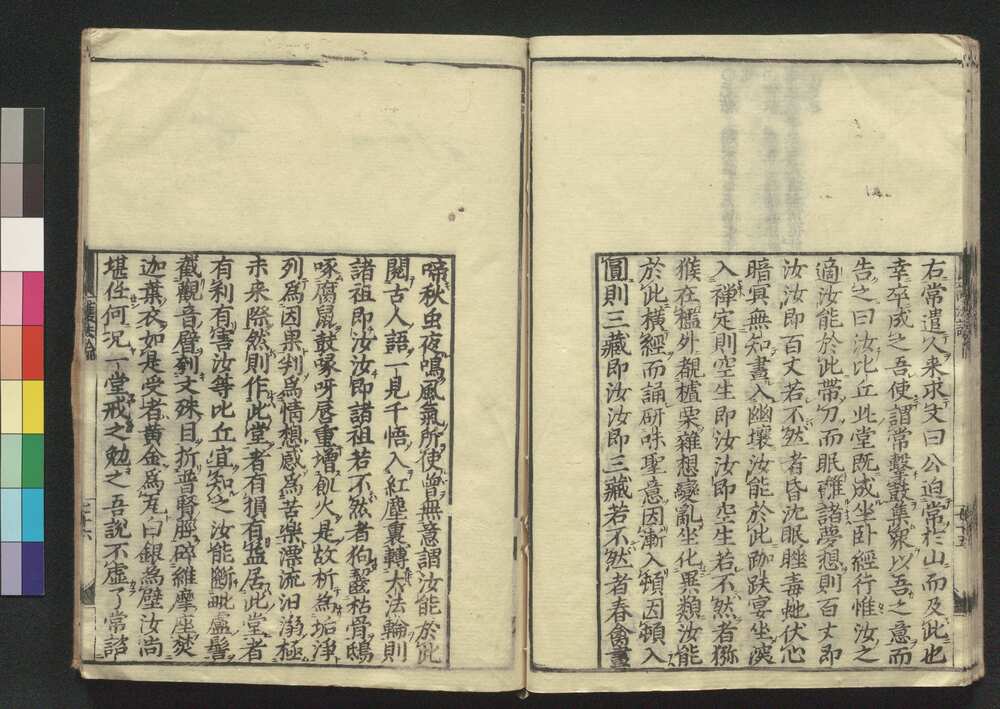 右常遣人来求文曰公迫常於山而及此也
幸卒成之吾使謂常擊鼓集衆以吾之意而
告之曰汝比丘此堂既成坐卧經行惟汝之
適汝能於此帶刀而眠離諸夢想則百丈即
汝汝即百丈若不然者昏沈睡眠毒虵伏心
暗冥無知晝入幽壤汝能於此跏趺宴坐深
入禅定則空生即汝汝即空生若不然者猕
猴在檻外覩樝栗雜想變亂坐化異類汝能
於此横經而誦研味聖意因漸入頓因頓入
圓則三藏即汝汝即三藏若不然者春禽晝
啼秋虫夜鳴風氣所使曽無意謂汝能於此
閱古人語一見千悟入紅塵裏轉大法輪則
諸祖即汝汝即諸祖若不然者狗齧枯骨鴟
啄腐鼠鼓喙呀唇重増飢火是故析為垢淨
列為因果判為情想感為苦樂漂流汨溺極
未来際然則作此堂者有損有益居此堂者
有利有害汝等比丘宜知之汝能斷毗盧髻
截觀音臂刳文殊目折普賢脛碎維摩座焚
迦葉衣如是受者黄金為瓦白銀為壁汝尚
堪任何况一堂戒之勉之吾説不虚了常諮